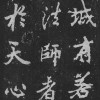 城有若
法師者
於天心